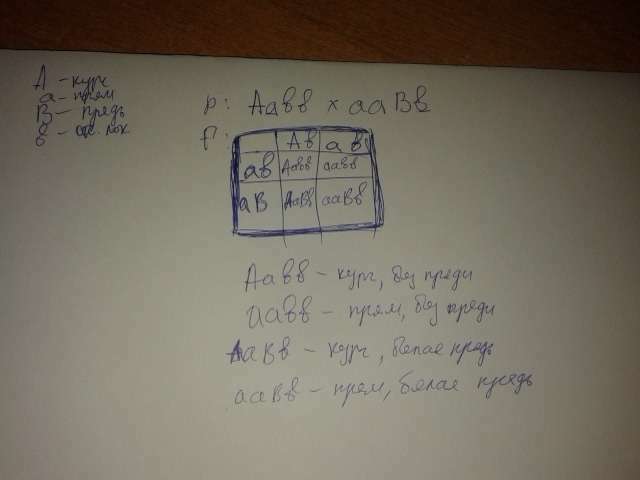 A - курч
a - прям
B - прядь
в - отс. лок.
P: Аавв x ааВв
F:
Ав ав
ав Аавв аавв
аВ АаВв ааВв
Аавв - курч, без пряди
аавв - прям, без пряди
АаВв - курч, белая прядь
ааВв - прям, белая прядь